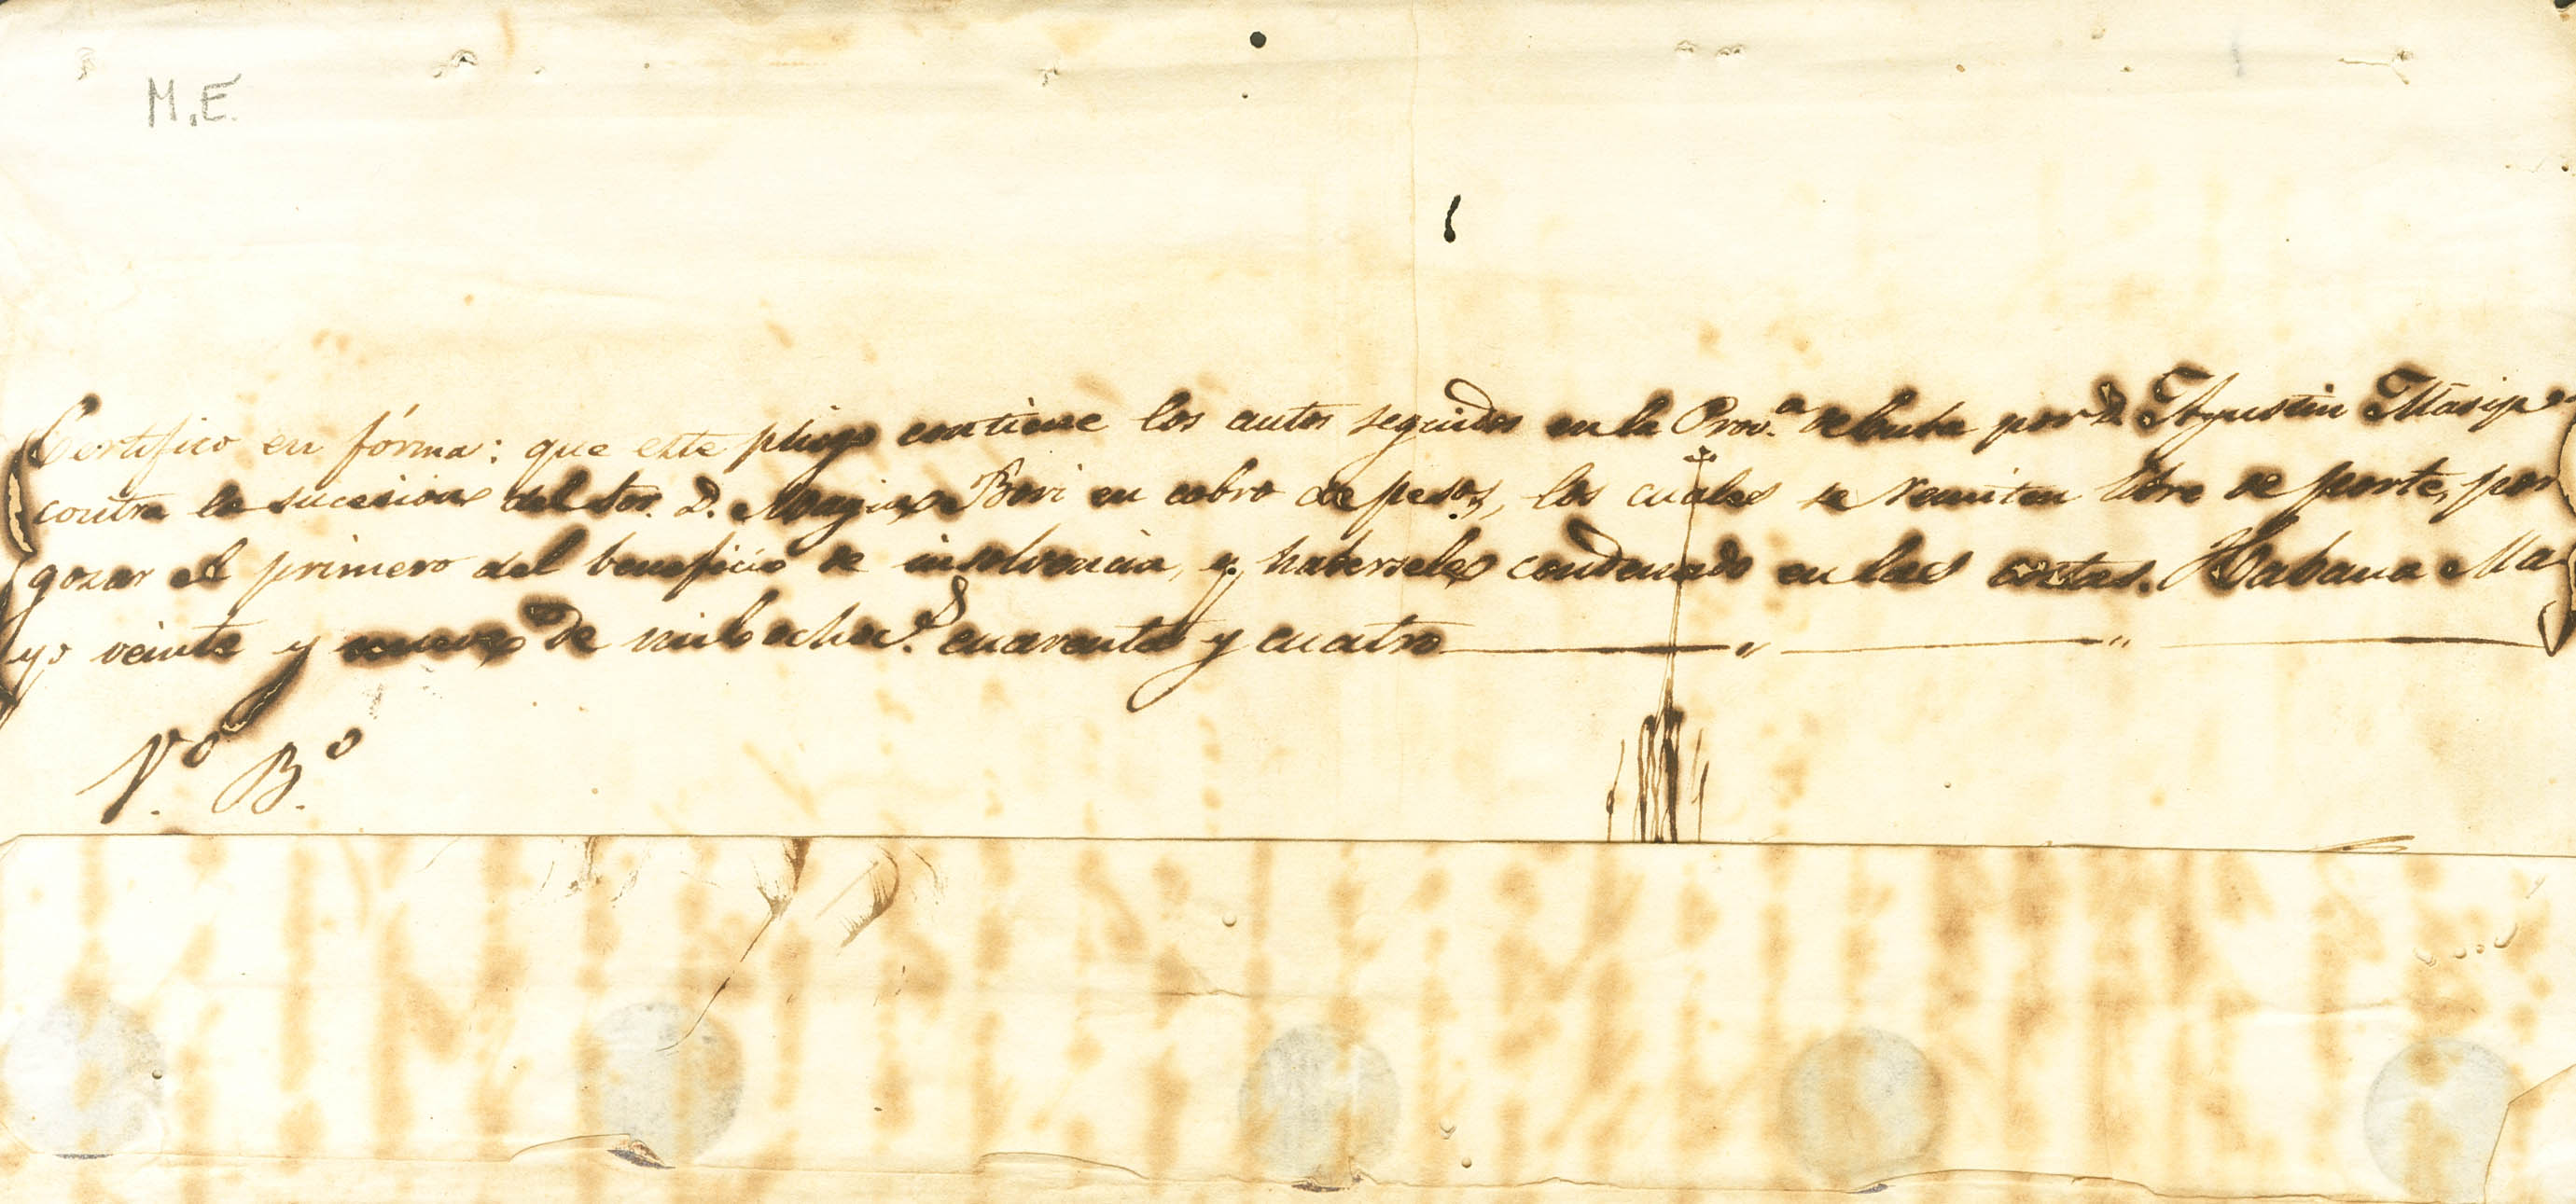 M.E.
Certifico en fórma: que este pliego contiene los autos seguidos en la Prov.ª de Cuba por D. Agustin Masip
contra la sucesion del Sor. D. Magin Bori en cobro de pesos, los cuales se remiten libre de porte, por
gozar el primero del beneficio de insolvencia, y habersele condenado en las costas. Habana Ma-
yo veinte y nueve de mil ochoc.s cuarenta y cuatro
V.º B.º